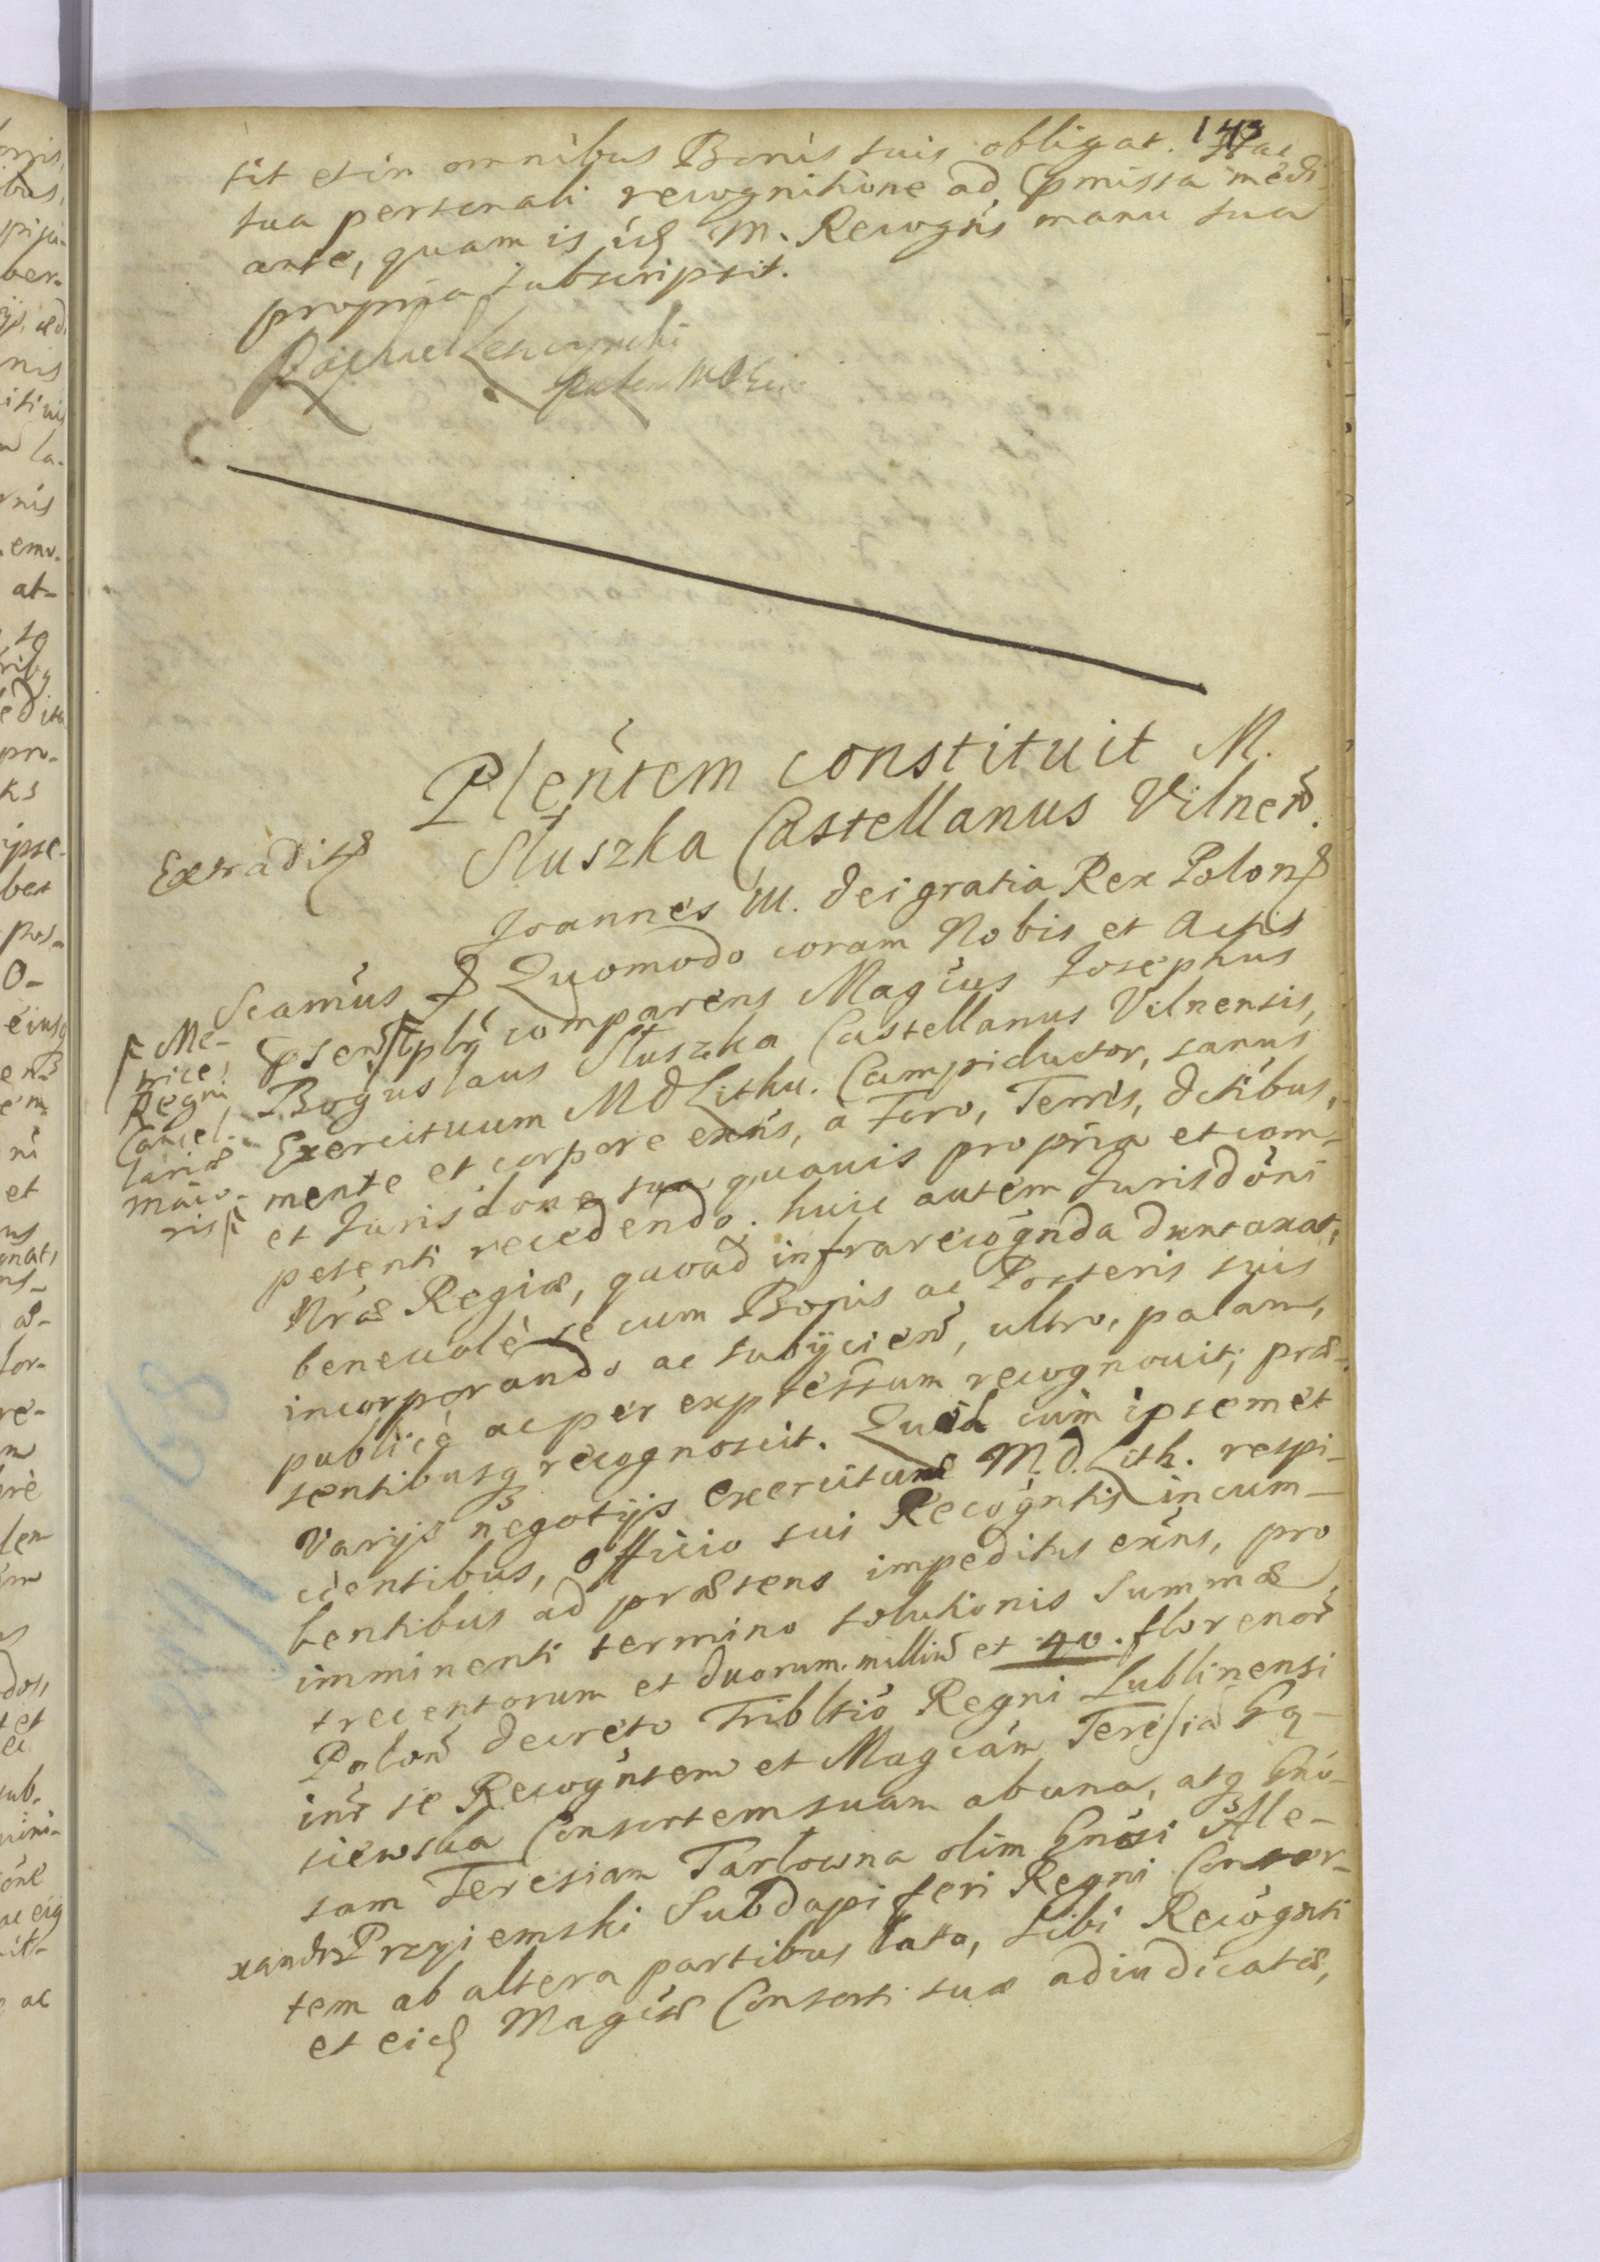 143
sit et in omnibus Bonis suis obligat. Hac
sua personali recognitione ad pmissa medi-
ante, quam is id M. Recogns manu sua
propria subscripsit.
Raphael Leszczynski
Extradit
Plentem constituit M.
Słuszka Castellanus Vilnen.
Joannes III. Dei gratia Rex Polon
Scamus Quomodo coram Nobis et Actis
Me-
trices
Regni
Cancel-
lariæ
maio-
ris
psen plr comparens Magcus Josephus
Boguslaus Słuszka Castellanus Vilnensis,
Exercituum M D Lithu. Campiductor, sanus
mente et corpore exns, à Foro, Terris, dctibus,
et Jurisdone sua quavis propria et com-
petenti recedendo. huic autem Jurisdoni
Nræ Regiæ, quoad infrarecognda duntaxat,
benevolè se cum Bonis ac Posteris suis
incorporando ac subijcien, ultro, palam,
publicq ac per expressum recognovit; præ-
sentibusq recognoscit. Quod cum ipsemet
Varijs negotijs exercituum M. D. Lith. respi-
cientibus, officio sui Recogntis incum-
bentibus ad præsens impeditus exns, pro
imminenti termino solutionis Summæ
trecentorum et duorum milliu et 40. florenor
Polon decreto Tribltio Regni Lublinensi
inr se Recogntem et Magcam Teresia Gą-
siewska Consortem suam ab una, atq Gno-
sam Teresiam Tarlowna olim Gnosi Ale-
xandri Przyiemski Subdapiferi Regni Consor-
tem ab altera partibus lato, sibi Recognti
et eid Magcæ Consorti suæ adiudicatæ,